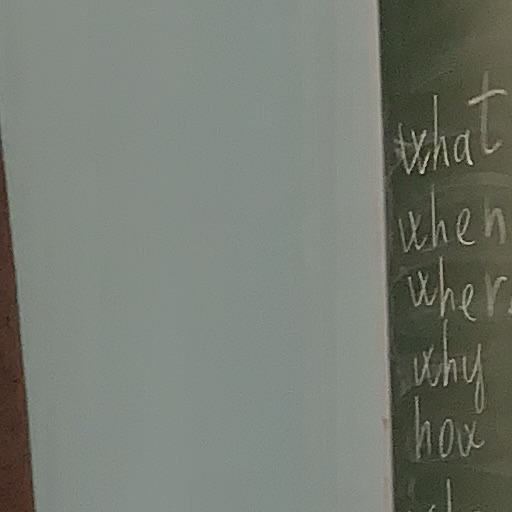 what
when
wher
why
how